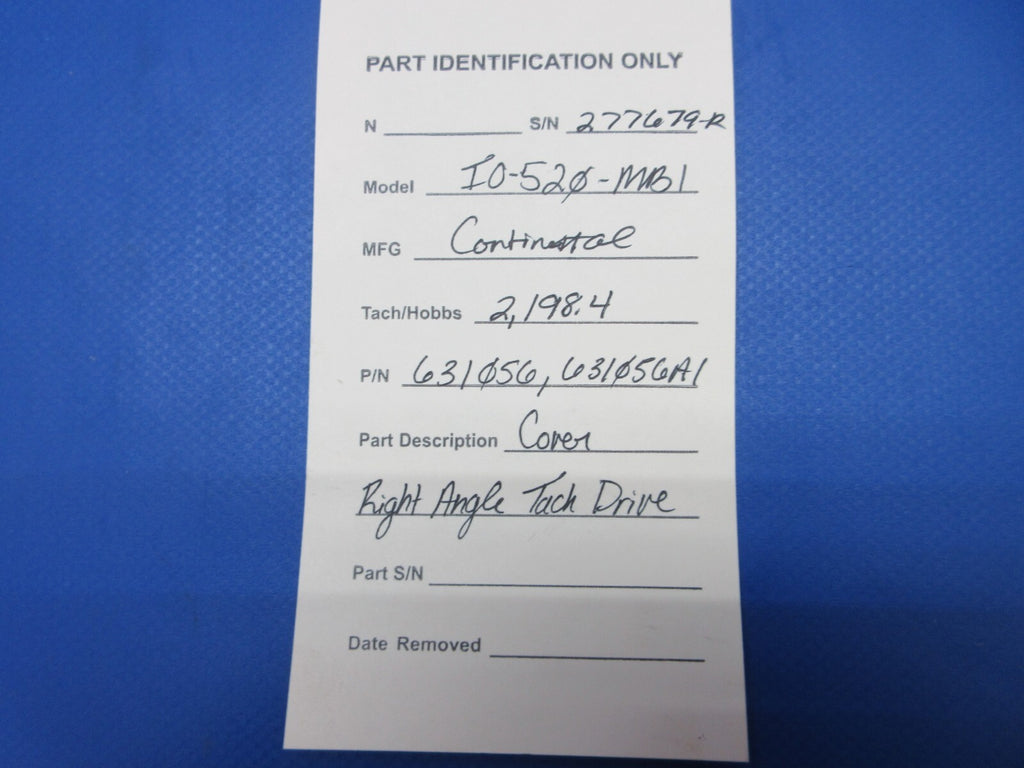 PART IDENTIFICATION ONLY
N S/N 277679-R
Model IO-52Ø-MB1
MFG Continental
Tach/Hobbs 2,198.4
P/N 631Ø56, 631Ø56A1
Part Description Cover
Right Angle Tach Drive
Part S/N
Date Removed